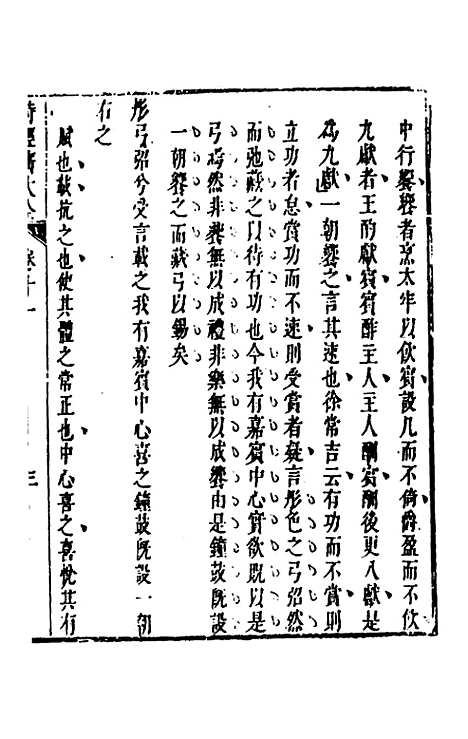 中行饗饗者烹太牢以飲賓設几而不倚爵盈而不飲
九獻者王酌獻賓賓酢主人主人酬賓酬後更八獻是
為九獻一朝饗之言其速也徐常吉云有功而不賞則
立功者怠賞功而不速則受賞者疑言彤色之弓弨然
而弛藏之以待有功也今我有嘉賓中心實欲貺以是
弓焉然非饗無以成禮非樂無以成饗由是鐘鼓旣設
一朝饗之而藏弓以錫矣
彤弓弨兮受言載之我有嘉賓中心喜之鐘鼓旣設一朝
右之
賦也載抗之也使其體之常正也中心喜之喜悅其有
詩經 大全 卷之十一
三